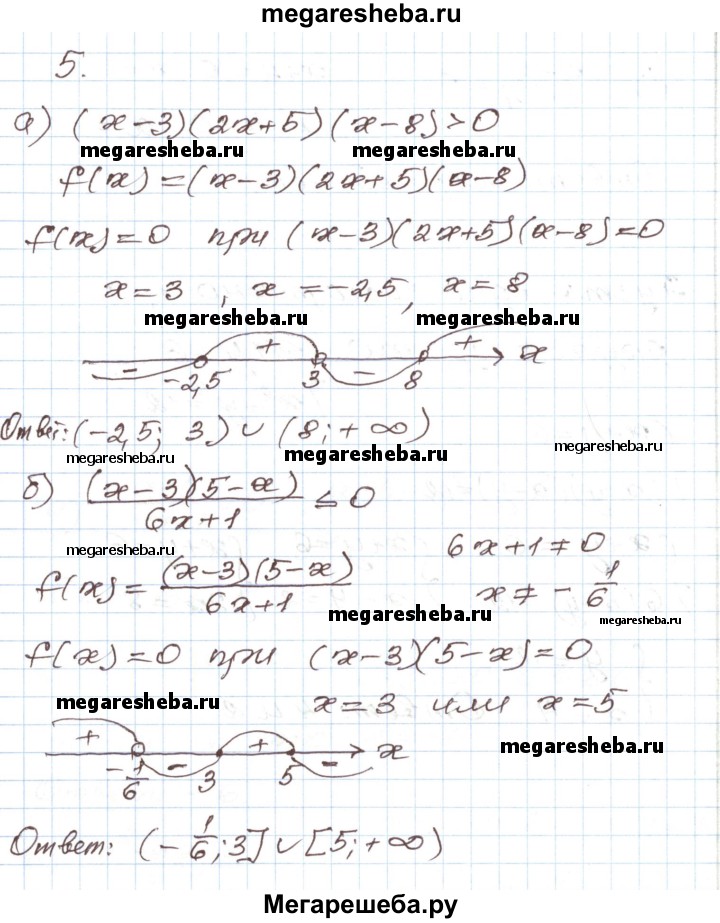 megaresheba.ru
5.
а) (x-3)(2x+5)(x-8)>0
megaresheba.ru megaresheba.ru
f(x)=(x-3)(2x+5)(x-8)
f(x)=0 при (x-3)(2x+5)(x-8)=0
x=3, x=-2,5, x=8
megaresheba.ru megaresheba.ru
- + - + x
-2,5 3 8
Ответ: (-2,5; 3) ∪ (8; +∞)
megaresheba.ru megaresheba.ru megaresheba.ru
б) (x-3)(5-x)/6x+1 ≤ 0
megaresheba.ru
6x+1≠0
f(x)=(x-3)(5-x)/6x+1 x≠-1/6
megaresheba.ru megaresheba.ru
f(x)=0 при (x-3)(5-x)=0
megaresheba.ru x=3 или x=5
+ - + - x
-1/6 3 5
megaresheba.ru
Ответ: (-1/6; 3] ∪ [5; +∞)
Мегарешеба.ру